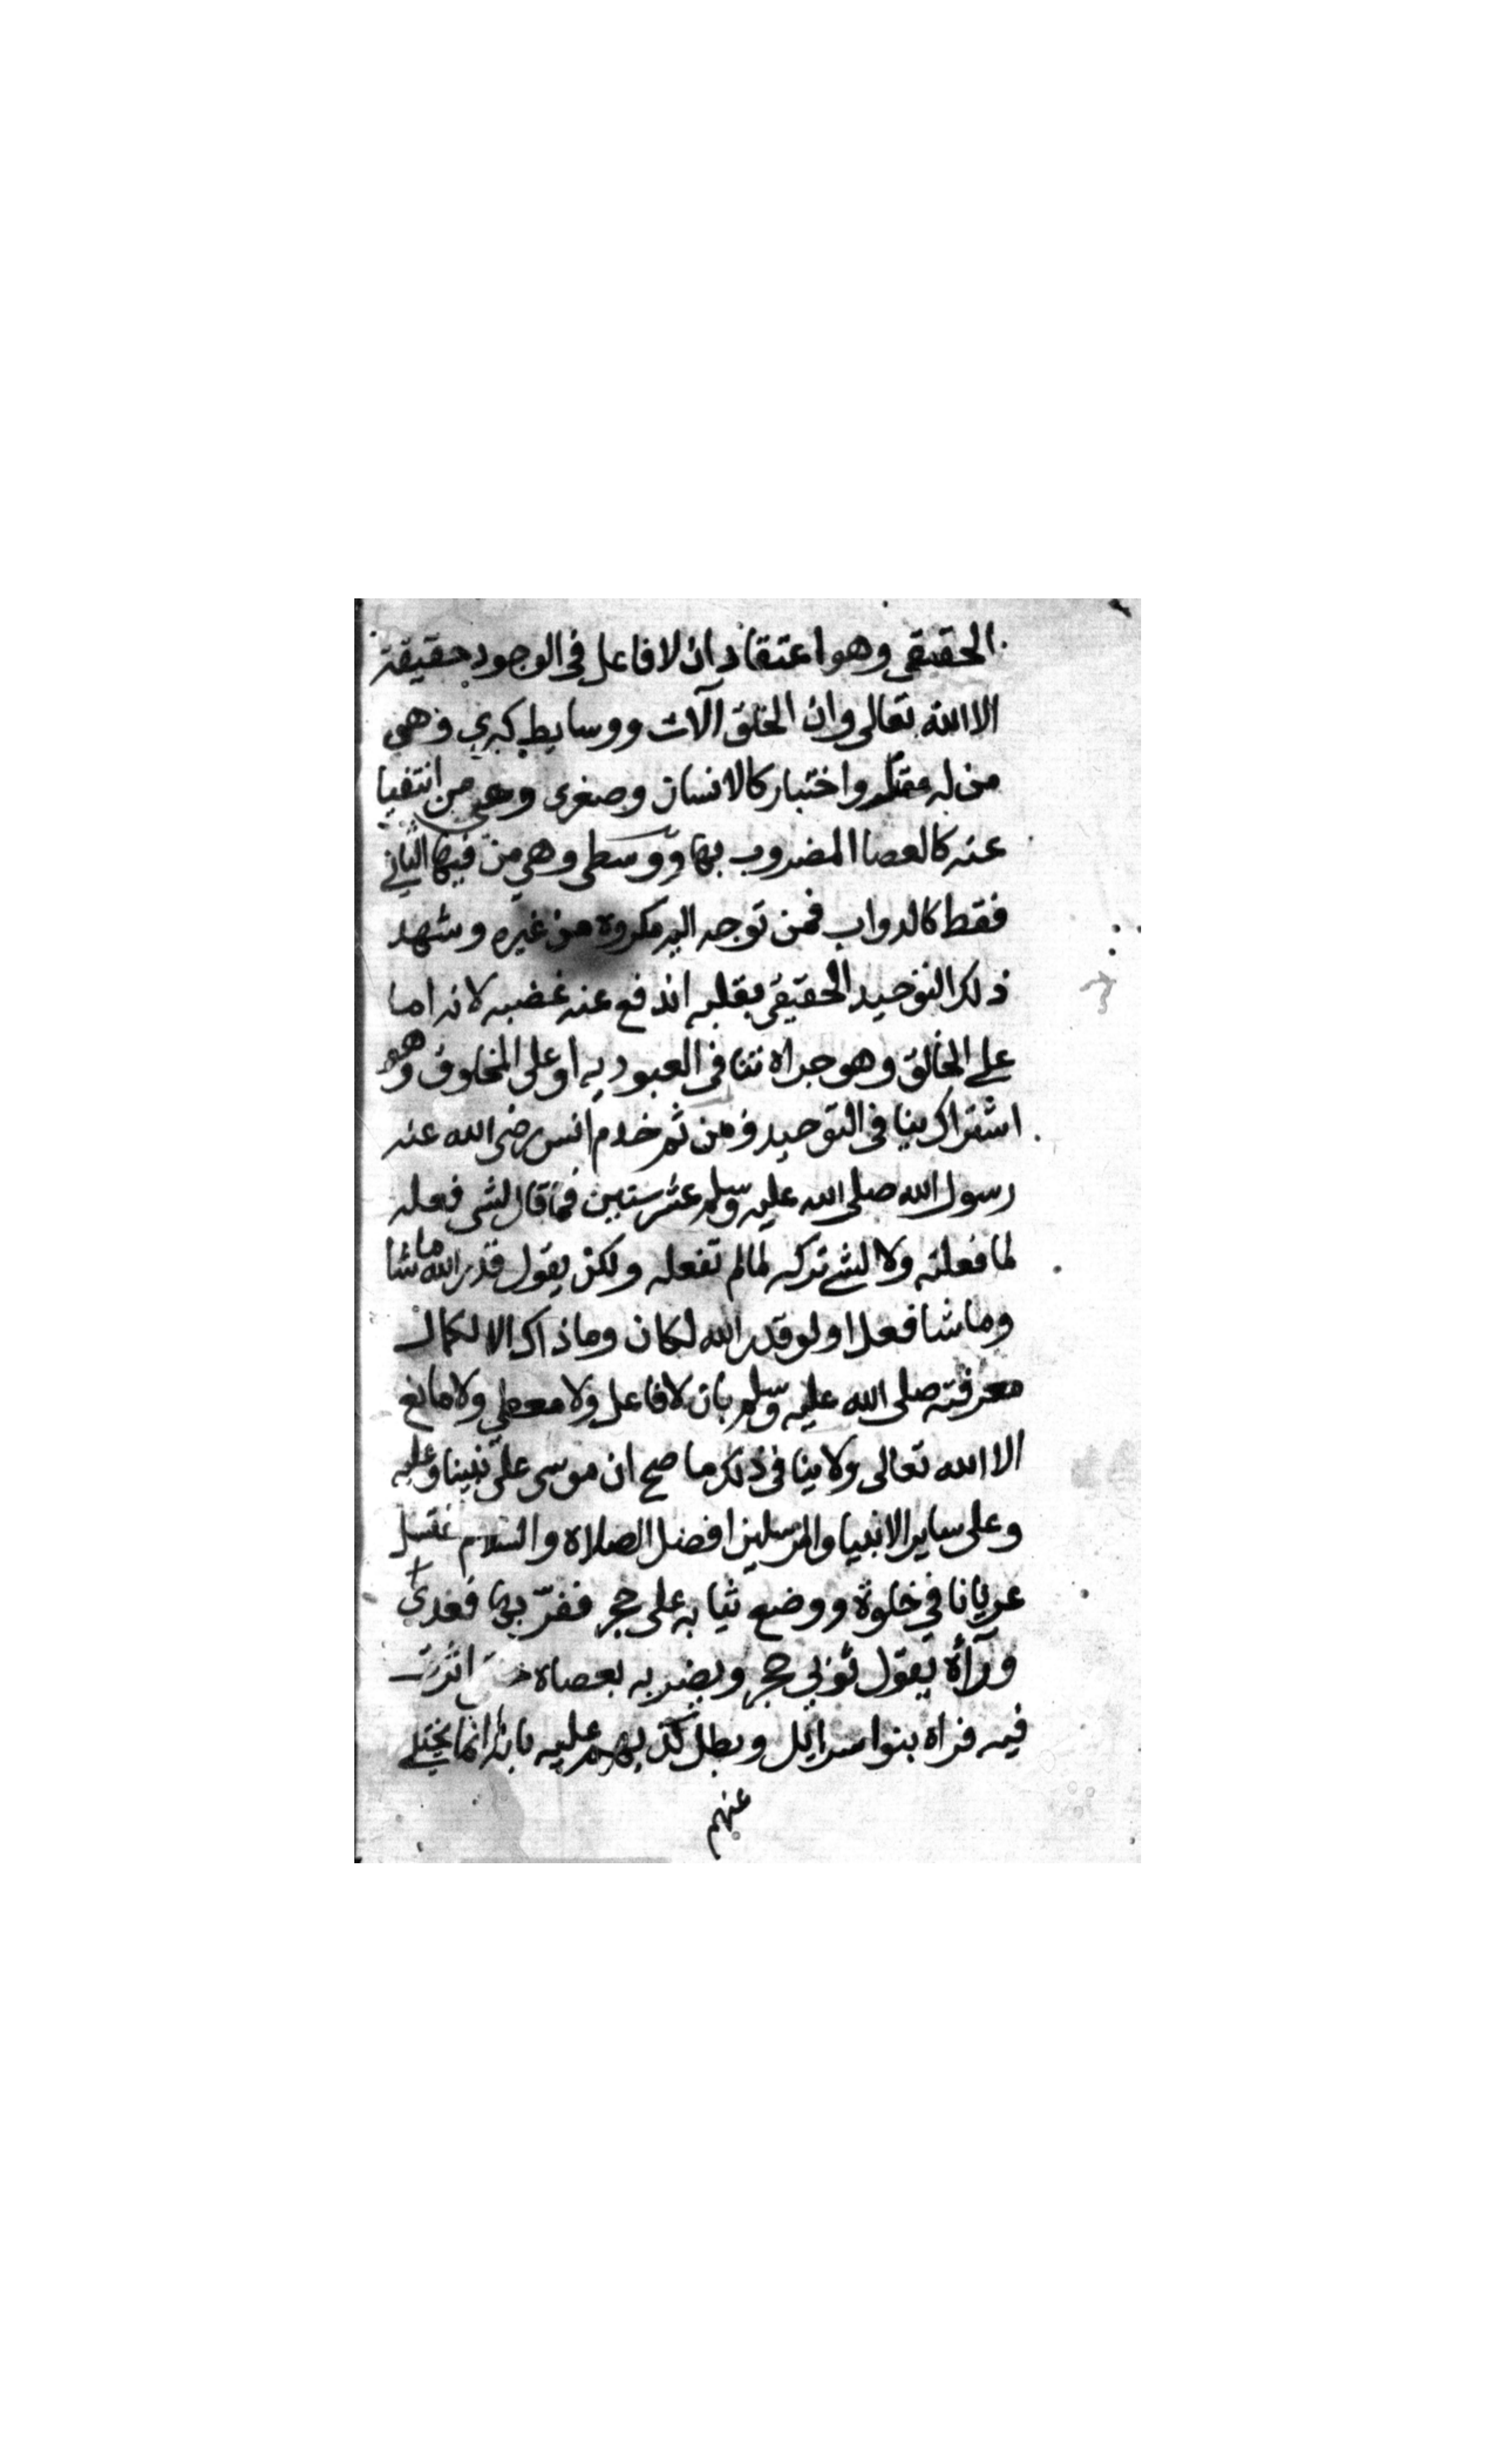 الحقيقي وهو اعتقاد ان لا فاعل في الوجود حقيقة
الا الله تعالى وان الخلق آلات ووسايط كبري وهي
من له عقل واختيار كالانسان وصغرى وهي من انتفيا
عنه كالعصا المضروب بها ووسطى وهي من فيها الثاني
فقط كالدواب فمن توجه اليه مكروه من غيره وشهد
ذلك التوحيد الحقيقي بقلبه اندفع عنه غضبه لانه اما
على الخالق وهو جراة تنافي العبودية او على المخلوق وهو
اشتراك ينافي التوحيد ومن ثم خدم انس رضي الله عنه
رسول الله صلى الله عليه وسلم عشر سنين فما قال لشي فعله
لما فعلته ولا لشي تركه لما لم تفعله ولكن يقول قدر الله ما شا
وما شا فعل او لو قدر الله لكان وما ذاك الا لكمال
معرفته صلى الله عليه وسلم بان لا فاعل ولا معطي ولا مانع
الا الله تعالى ولا ينافي ذلك ما صح ان موسى على نبينا وعليه
وعلى ساير الانبيا والمرسلين افضل الصلاة والسلام غتسل
عريانا في خلوة ووضع ثيابه على حجر ففر بها فغدى
ورآه يقول ثوبي حجر ويضربه بعصاه اثرت
فيه فراه بنوا سرايل وبطل كذبهم عليه بانه انما يختلي
عنهم